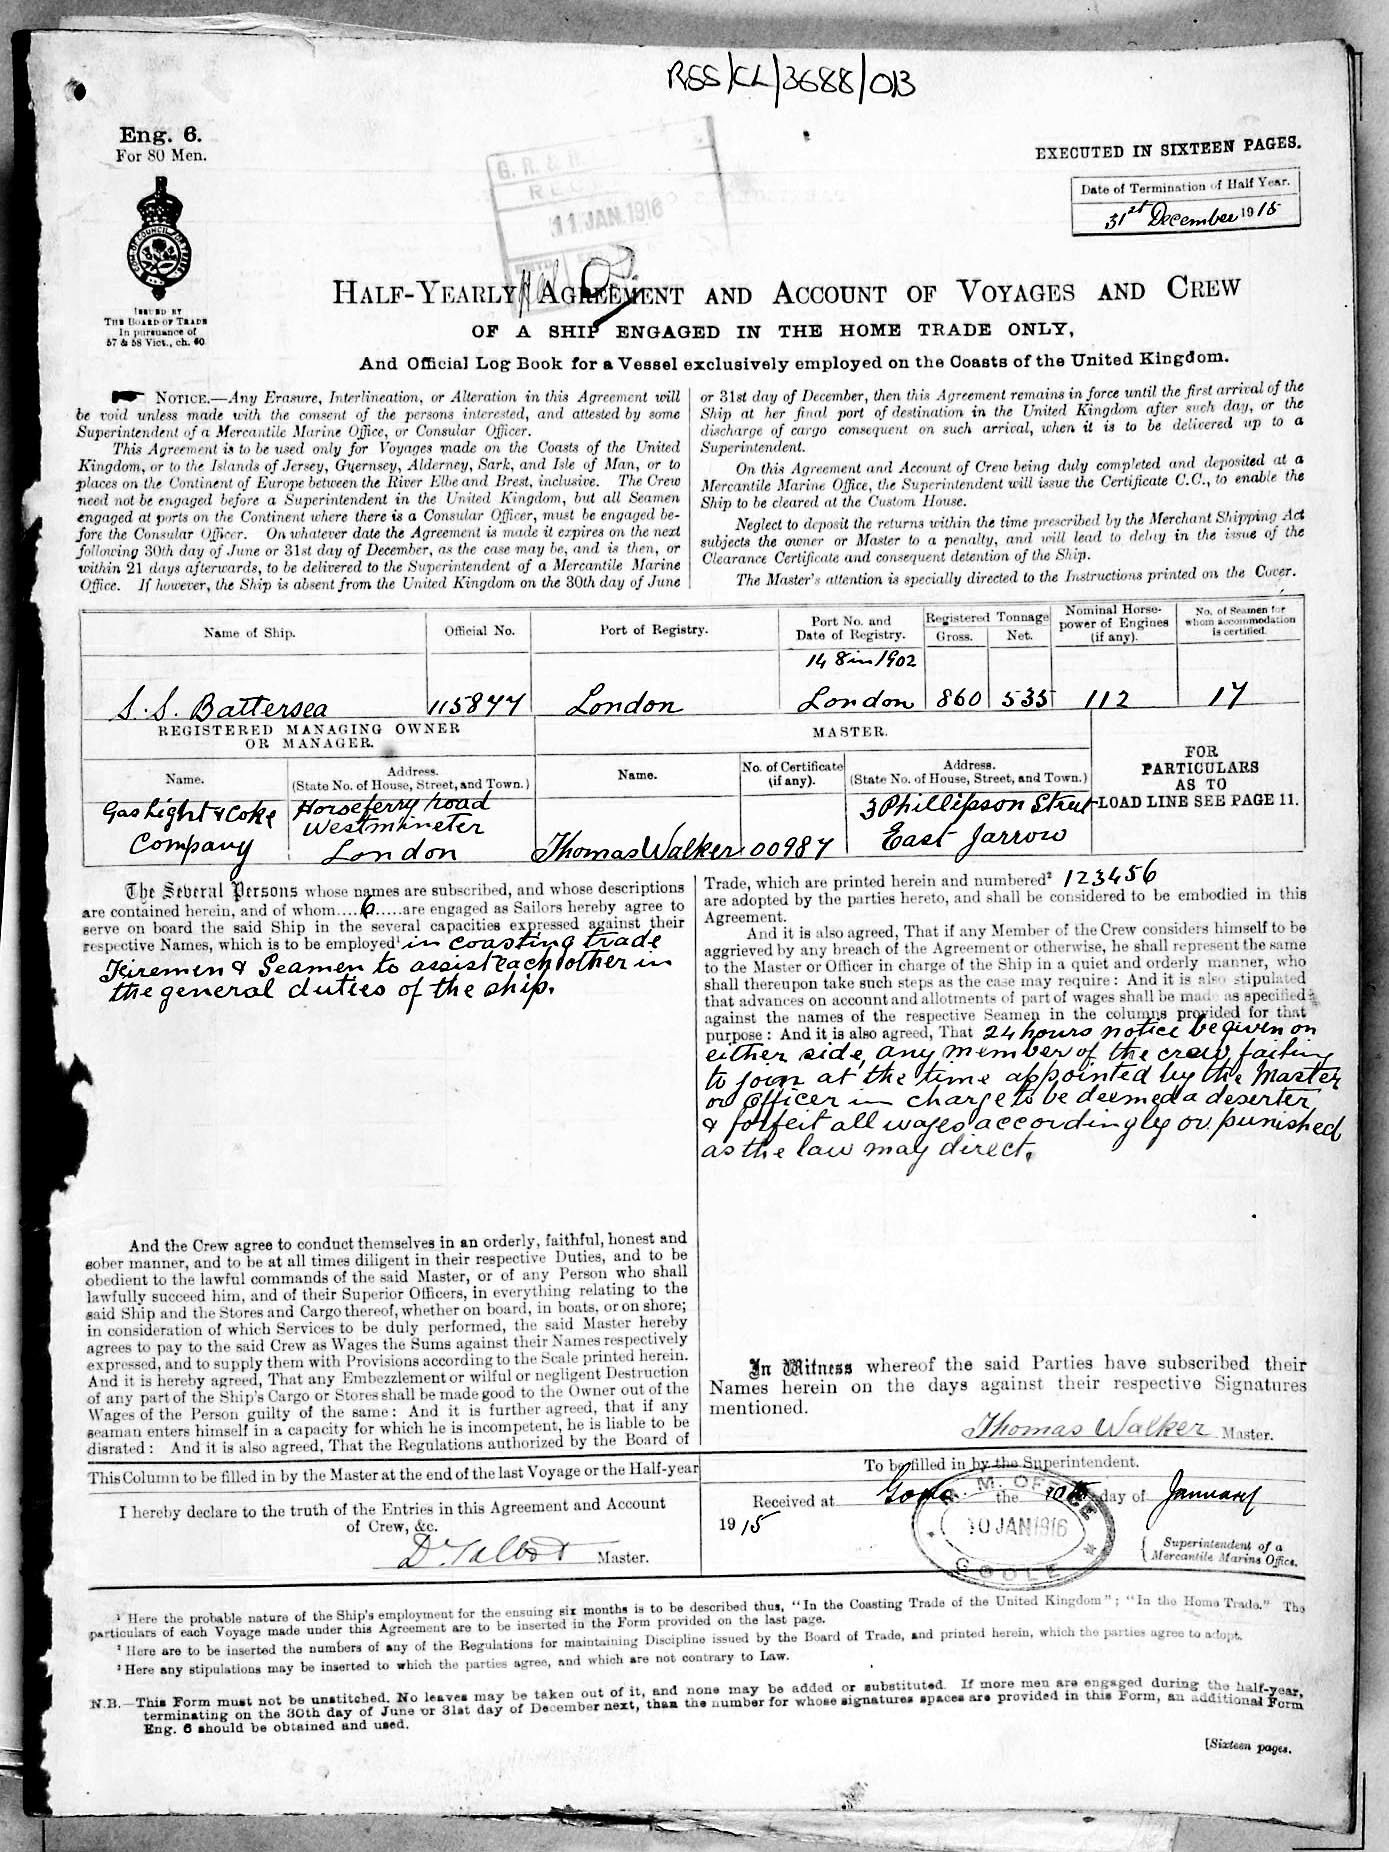 RSS/CL/3688/013
Eng. 6.
For 80 Men.
ISSUED BY
THE BOARD OF TRADE
In pursuance of
57 & 58 Vict., ch. 60
G. R. &
REC
11 JAN. 1916
EXECUTED IN SIXTEEN PAGES.
Date of Termination of Half Year.
31st December 1915
HALF-YEARLY AGREEMENT AND ACCOUNT OF VOYAGES AND CREW
OF A SHIP ENGAGED IN THE HOME TRADE ONLY,
And Official Log Book for a Vessel exclusively employed on the Coasts of the United Kingdom.
NOTICE.—Any Erasure, Interlineation, or Alteration in this Agreement will
be void unless made with the consent of the persons interested, and attested by some
Superintendent of a Mercantile Marine Office, or Consular Officer.
This Agreement is to be used only for Voyages made on the Coasts of the United
Kingdom, or to the Islands of Jersey, Guernsey, Alderney, Sark, and Isle of Man, or to
places on the Continent of Europe between the River Elbe and Brest, inclusive. The Crew
need not be engaged before a Superintendent in the United Kingdom, but all Seamen
engaged at ports on the Continent where there is a Consular Officer, must be engaged be-
fore the Consular Officer. On whatever date the Agreement is made it expires on the next
following 30th day of June or 31st day of December, as the case may be, and is then, or
within 21 days afterwards, to be delivered to the Superintendent of a Mercantile Marine
Office. If however, the Ship is absent from the United Kingdom on the 30th day of June
or 31st day of December, then this Agreement remains in force until the first arrival of the
Ship at her final port of destination in the United Kingdom after such day, or the
discharge of cargo consequent on such arrival, when it is to be delivered up to a
Superintendent.
On this Agreement and Account of Crew being duly completed and deposited at a
Mercantile Marine Office, the Superintendent will issue the Certificate C.C., to enable the
Ship to be cleared at the Custom House.
Neglect to deposit the returns within the time prescribed by the Merchant Shipping Act
subjects the owner or Master to a penalty, and will lead to delay in the issue of the
Clearance Certificate and consequent detention of the Ship.
The Master's attention is specially directed to the Instructions printed on the Cover.
Name of Ship. Official No. Port of Registry. Port No. and Date of Registry. Registered Tonnage Gross. Net. Nominal Horse-power of Engines (if any). No. of Seamen for whom accommodation is certified.
148 in 1902
S.S. Battersea 115877 London London 860 535 112 17
REGISTERED MANAGING OWNER
OR MANAGER.
MASTER.
Name. Address. (State No. of House, Street, and Town.) Name. No. of Certificate (if any). Address. (State No. of House, Street, and Town.)
FOR
PARTICULARS
AS TO
LOAD LINE SEE PAGE 11.
Gas Light & Coke Horseferry road 3 Phillipson Street
Westminster
Company London Thomas Walker 00987 East Jarrow
The Several Persons whose names are subscribed, and whose descriptions
are contained herein, and of whom....6.....are engaged as Sailors hereby agree to
serve on board the said Ship in the several capacities expressed against their
respective Names, which is to be employed¹ in coasting trade
Firemen & Seamen to assist each other in
the general duties of the ship.
And the Crew agree to conduct themselves in an orderly, faithful, honest and
sober manner, and to be at all times diligent in their respective Duties, and to be
obedient to the lawful commands of the said Master, or of any Person who shall
lawfully succeed him, and of their Superior Officers, in everything relating to the
said Ship and the Stores and Cargo thereof, whether on board, in boats, or on shore;
in consideration of which Services to be duly performed, the said Master hereby
agrees to pay to the said Crew as Wages the Sums against their Names respectively
expressed, and to supply them with Provisions according to the Scale printed herein.
And it is hereby agreed, That any Embezzlement or wilful or negligent Destruction
of any part of the Ship's Cargo or Stores shall be made good to the Owner out of the
Wages of the Person guilty of the same: And it is further agreed, that if any
seaman enters himself in a capacity for which he is incompetent, he is liable to be
disrated: And it is also agreed, That the Regulations authorized by the Board of
Trade, which are printed herein and numbered² 123456
are adopted by the parties hereto, and shall be considered to be embodied in this
Agreement.
And it is also agreed, That if any Member of the Crew considers himself to be
aggrieved by any breach of the Agreement or otherwise, he shall represent the same
to the Master or Officer in charge of the Ship in a quiet and orderly manner, who
shall thereupon take such steps as the case may require: And it is also stipulated
that advances on account and allotments of part of wages shall be made as specified
against the names of the respective Seamen in the columns provided for that
purpose: And it is also agreed, That 24 hours notice be given on
either side, any member of the crew failing
to join at the time appointed by the Master
or Officer in charge to be deemed a deserter
& forfeit all wages accordingly or punished
as the law may direct.
In Witness whereof the said Parties have subscribed their
Names herein on the days against their respective Signatures
mentioned.
Thomas Walker Master.
This Column to be filled in by the Master at the end of the last Voyage or the Half-year
I hereby declare to the truth of the Entries in this Agreement and Account
of Crew, &c.
D. Talbot Master.
To be filled in by the Superintendent.
Received at Goole the 10th day of January
1915
M. M. OFFICE
10 JAN 1916
GOOLE
Superintendent of a
Mercantile Marine Office.
¹ Here the probable nature of the Ship's employment for the ensuing six months is to be described thus, "In the Coasting Trade of the United Kingdom"; "In the Home Trade." The
particulars of each Voyage made under this Agreement are to be inserted in the Form provided on the last page.
² Here are to be inserted the numbers of any of the Regulations for maintaining Discipline issued by the Board of Trade, and printed herein, which the parties agree to adopt.
³ Here any stipulations may be inserted to which the parties agree, and which are not contrary to Law.
N.B.—This Form must not be unstitched. No leaves may be taken out of it, and none may be added or substituted. If more men are engaged during the half-year,
terminating on the 30th day of June or 31st day of December next, than the number for whose signatures spaces are provided in this Form, an additional Form
Eng. 6 should be obtained and used.
[Sixteen pages.